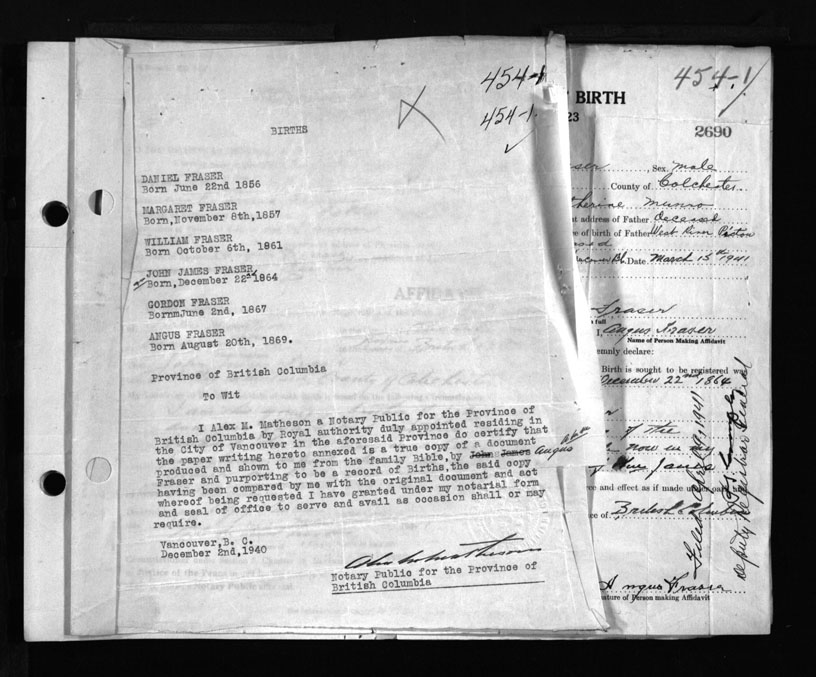 454-1
454-1
BIRTHS
DANIEL FRASER
Born June 22nd 1856
MARGARET FRASER
Born,November 8th,1857
WILLIAM FRASER
Born October 6th, 1861
JOHN JAMES FRASER
Born,December 22nd 1864
GORDON FRASER
BornmJune 2nd, 1867
ANGUS FRASER
Born August 20th, 1869.
Province of British Columbia
To Wit
I Alex M. Matheson a Notary Public for the Province of
British Columbia by Royal authority duly appointed residing in
the City of Vancouver in the aforesaid Province do certify that
the paper writing hereto annexed is a true copy of a document
produced and shown to me from the family Bible,by John James Angus
Fraser and purporting to be a record of Births,the said copy
having been compared by me with the original document and act
whereof being requested I have granted under my notarial form
and seal of office to serve and avail as occasion shall or may
require.
Vancouver,B. C.
December 2nd,1940
Notary Public for the Province of
British Columbia
AFFIDA
454-1
BIRTH
23
2690
, Sex male
County of Colchester
therine Munro
address of Father Deceased
e of birth of Father West River Pictou
Date March 15th 1941
Fraser
full
I, Angus Fraser
Name of Person Making Affidavit
emnly declare:
Birth is sought to be registered was
December 22nd 1864
of the
now in my
James
ce and effect as if made under oath
ce of British Columbia
Angus Fraser
ature of Person making Affidavit
Filed 1941
Deputy Registrar General